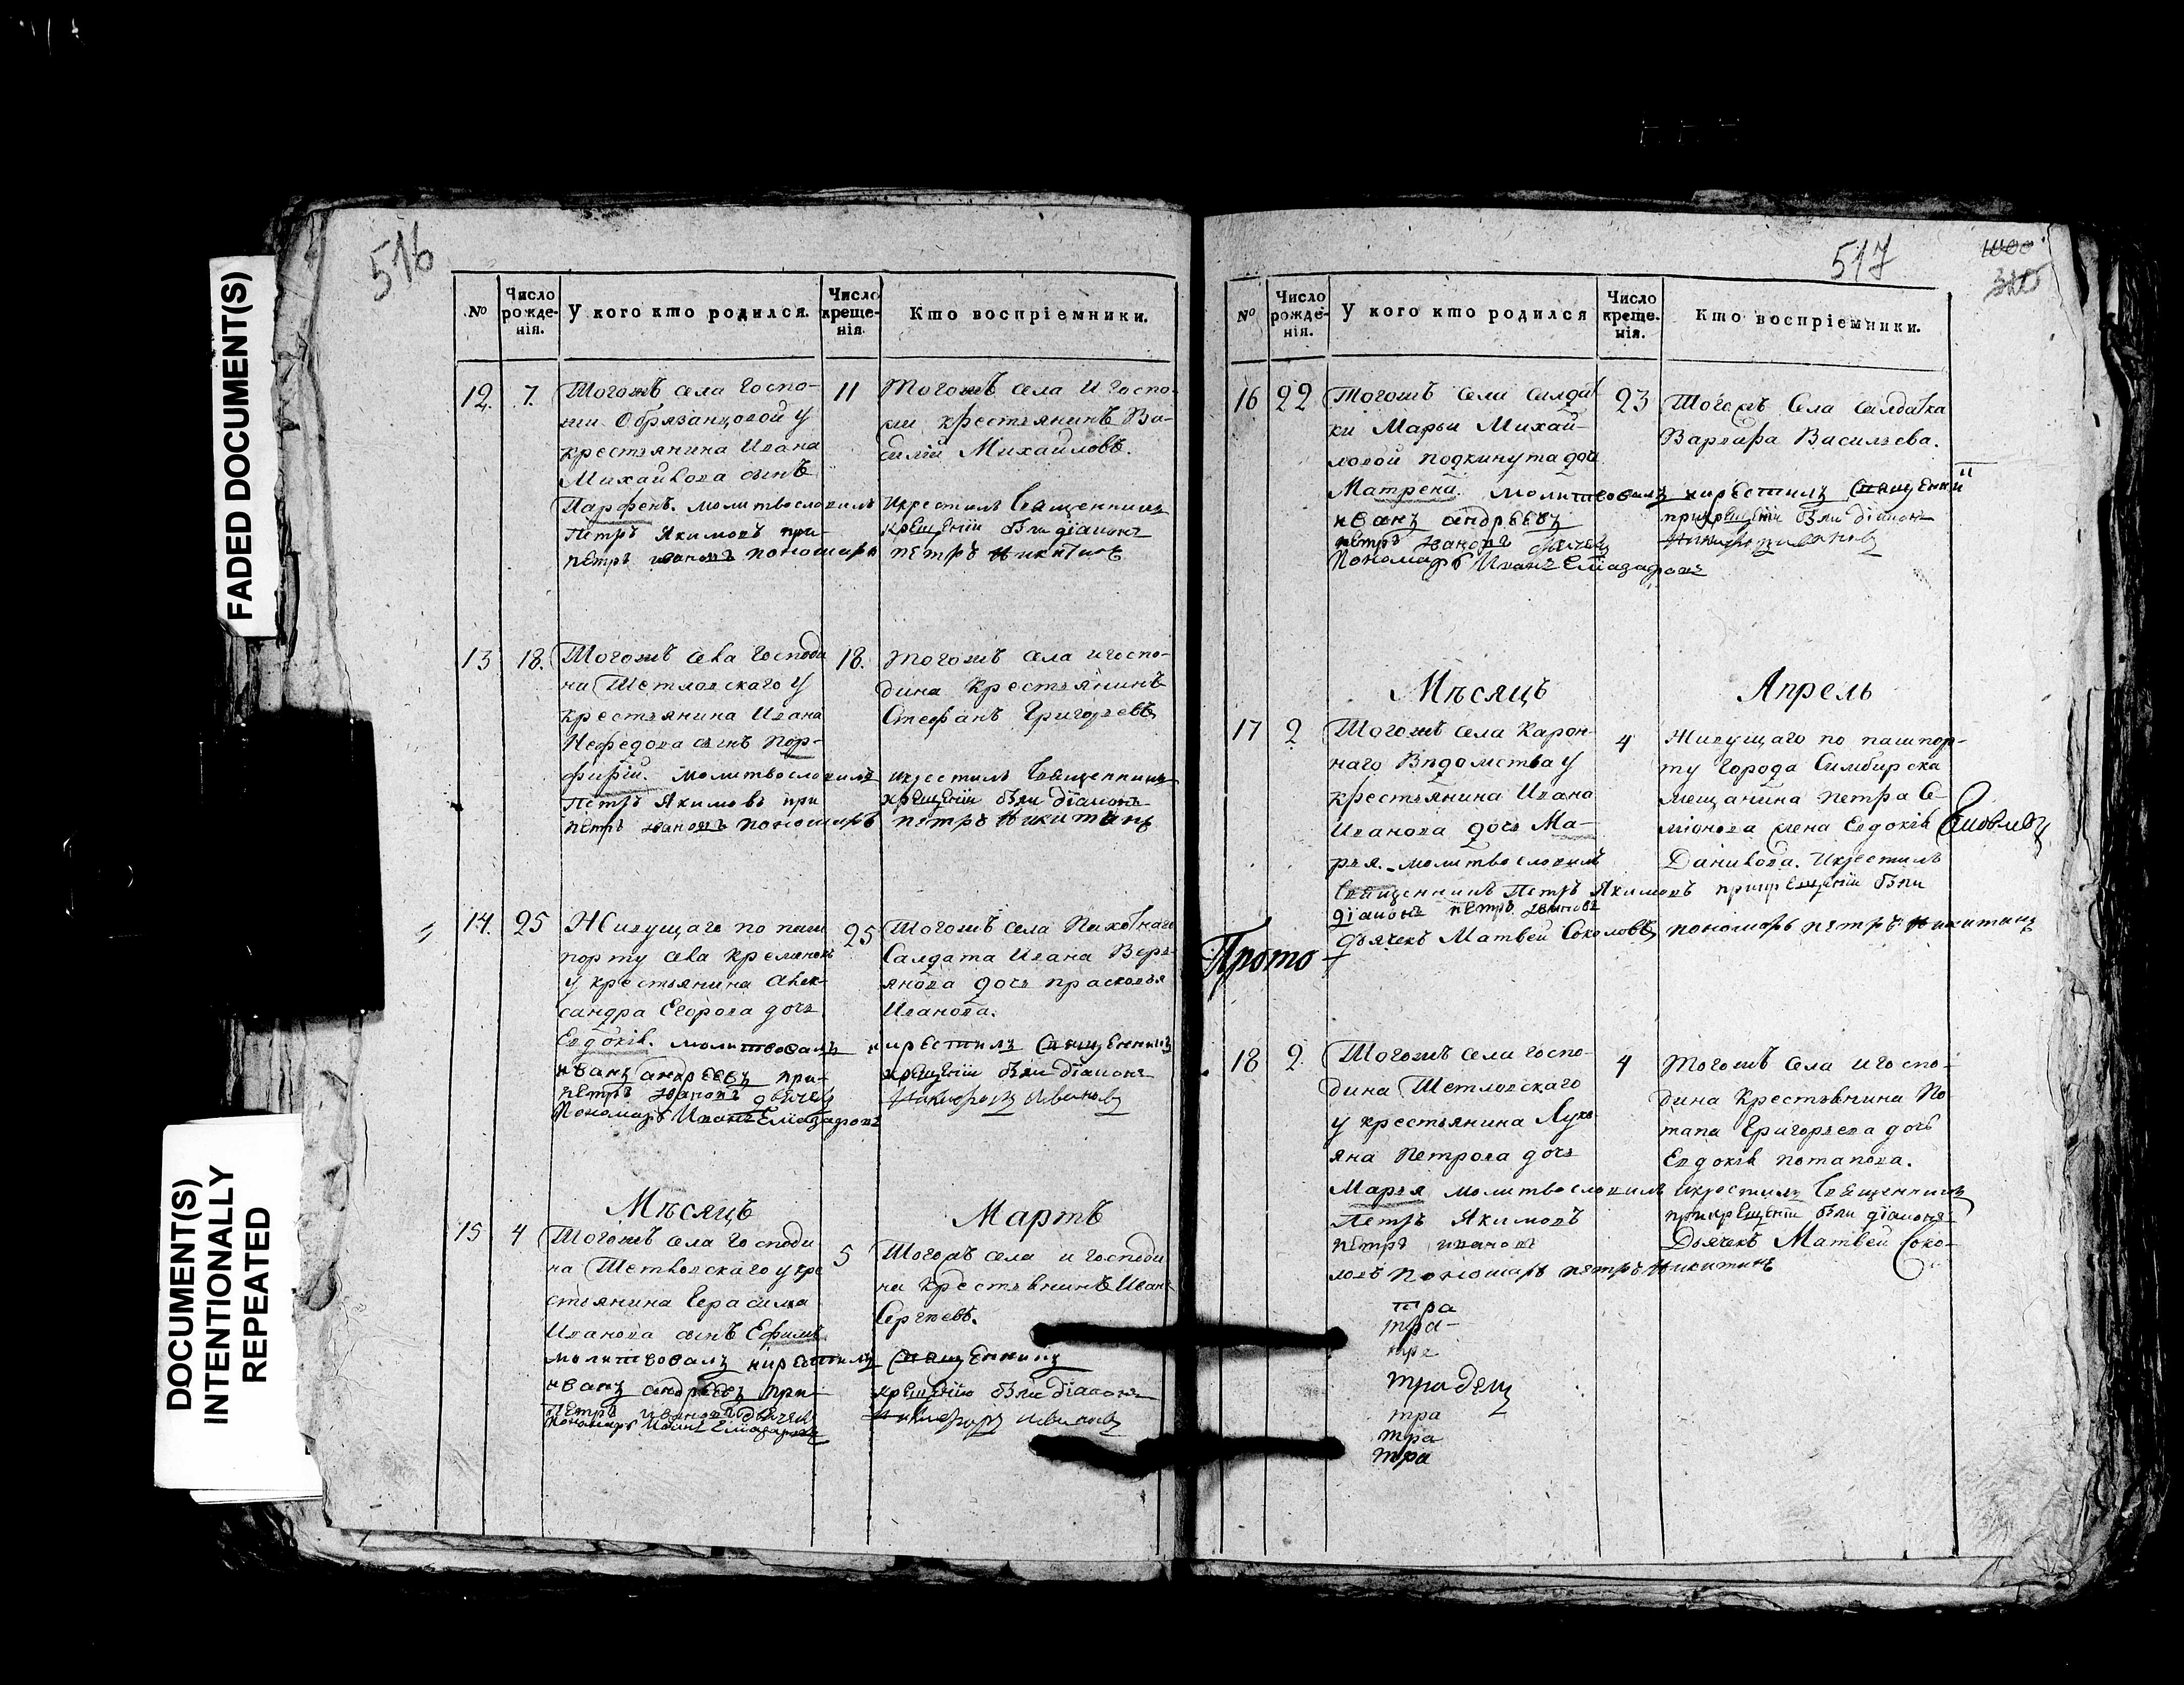 FADED DOCUMENT(S)
DOCUMENT(S)
INTENTIONALLY
REPEATED
516
№
Число рожденія.
У кого кто родился.
Число крещенія.
Кто воспріемники.
12.
7.
Тогожъ села госпо-
жи Обрязанцовой у
крестьянина Ивана
Михайлова сынъ
Парфенъ. молитвословилъ
Петръ Якимовъ при
петръ ивановъ пономарь
11
Тогожъ села и госпо-
жи крестьянинъ Ва-
силій Михайловъ.
и крестилъ Священникъ
крещеніи были діаконъ
петръ Никитинъ
13
18.
Тогожъ села господи
на Шетловскаго у
крестьянина Ивана
Нефедова сынъ Пор-
фирій. молитвословилъ
Петръ Якимовъ при
петръ ивановъ пономарь
18.
Тогожъ села и госпо-
дина крестьянинъ
Стефанъ Григорьевъ
и крестилъ Священникъ
крещеніи были діаконъ
петръ Никитинъ
14.
25
Живущаго по паш
порту села
у крестьянина Алек-
сандра Егорова дочь
Евдокія. молитвовалъ
иванъ андреевъ при-
петръ ивановъ дьячекъ
Пономарь Иванъ Елиазаровъ
25
Тогожъ села Пахотнаго
Салдата Ивана
дочь прасковья
Иванова.
и крестилъ Священникъ
крещеніи были діаконъ
Никифоръ Ивановъ
Мѣсяцъ
Мартъ
15
4
Тогожъ села господи
на Шетловскаго у кре
стьянина Герасима
Иванова сынъ Ефимъ
молитвовалъ и крестилъ
иванъ андреевъ при-
петръ ивановъ дьячекъ
Пономарь Иванъ Елиазаровъ
5
Тогожъ села и господи
на крестьянинъ Иванъ
Сергѣевъ.
Священникъ
крещеніи были діаконъ
Никифоръ Ивановъ
517
№
Число рожденія.
У кого кто родился
Число крещенія.
Кто воспріемники.
16
22
Тогожъ села салдат
ки Марьи Михай-
ловой подкинута дочь
Матрена. молитвовалъ и крестилъ Священни
иванъ андреевъ
петръ ивановъ дьячекъ
Пономарь Иванъ Елиазаровъ
23
Тогожъ села салдатка
Варвара Васильева.
при крещеніи были діаконъ
Никифоръ Ивановъ
Мѣсяцъ
Апрель
17
2
Тогожъ села Карон-
наго Вѣдомства у
крестьянина Ивана
Иванова дочь Ма-
рья. молитвословилъ
Священникъ Петръ Якимовъ при крещеніи были
діаконъ петръ ивановъ
дьячекъ Матвей Соколовъ пономарь петръ Никитинъ
4
Живущаго по пашпор-
ту города Симбирска
мещанина петра Се-
міонова жена Евдокія
Данилова. и крестилъ
Прото
18
2
Тогожъ села госпо-
дина Шетловскаго
у крестьянина Лукь
яна Петрова дочь
Марья молитвословилъ и крестилъ Священникъ
Петръ Якимовъ
петръ ивановъ
ловъ Пономарь петръ Никитинъ
4
Тогожъ села и госпо-
дина крестьянина По
тапа Григорьева дочь
Евдокія потапова.
при крещеніи были діаконъ
Дьячекъ Матвей Соко-
тра
тра
тра
тра
тра
тра